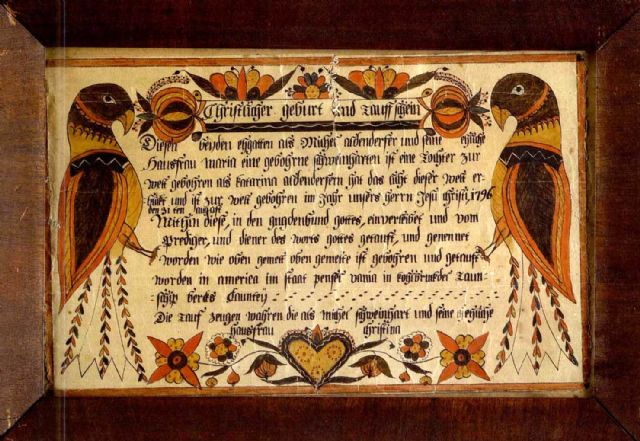 Christlicher geburt und Tauffschein
Diesen beyden ehgatten als Michel aldenderfer und seine ehliche
Hausfrau maria eine gebohrne schweingarten ist eine tochter zur
welt gebohren als katarina aldenderfern hat das licht dieser welt er-
blickt und ist zur welt gebohren im Jahr unsers herrn Jesu christi 1796
den 21 ten august
Mithin diese, in den gnadenbund gottes, einverleibet und vom
Prediger, und diener des worts gottes getauft, und genennet
worden wie oben gemelt oben gemelte ist gebohren und getauft
worden in america im staat pensel vania in
Taun-
schip bercks Caunty
Die tauf zeugen wahren die als michel schweinhart und seine eheliche
hausfrau christina